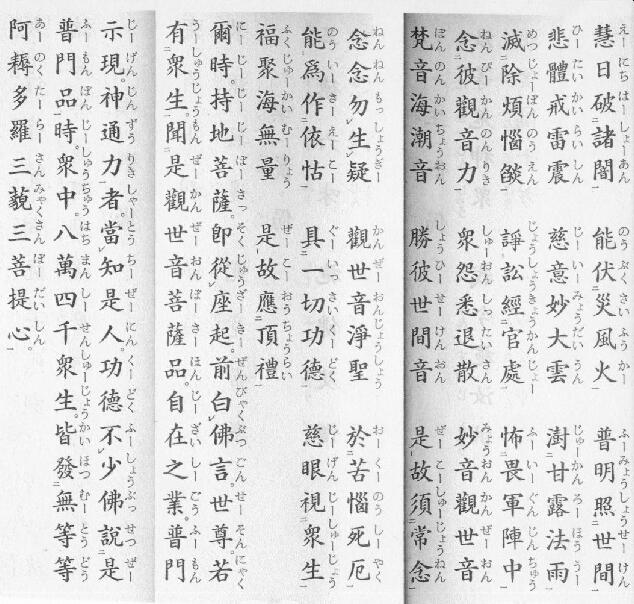 慧日破諸闇 能伏災風火 普明照世間
悲體戒雷震 慈意妙大雲 澍甘露法雨
滅除煩惱燄 諍訟經官處 怖畏軍陣中
念彼觀音力 衆怨悉退散 妙音觀世音
梵音海潮音 勝彼世間音 是故須常念
念念勿生疑 觀世音淨聖 於苦惱死厄
能爲作依怙 具一切功德 慈眼視衆生
福聚海無量 是故應頂禮
爾時。持地菩薩。卽從座起。前白佛言。世尊。若
有衆生。聞是觀世音菩薩品。自在之業。普門
示現神通力者。當知是人。功德不少佛說是
普門品時。衆中。八萬四千衆生。皆發無等等
阿耨多羅三藐三菩提心。